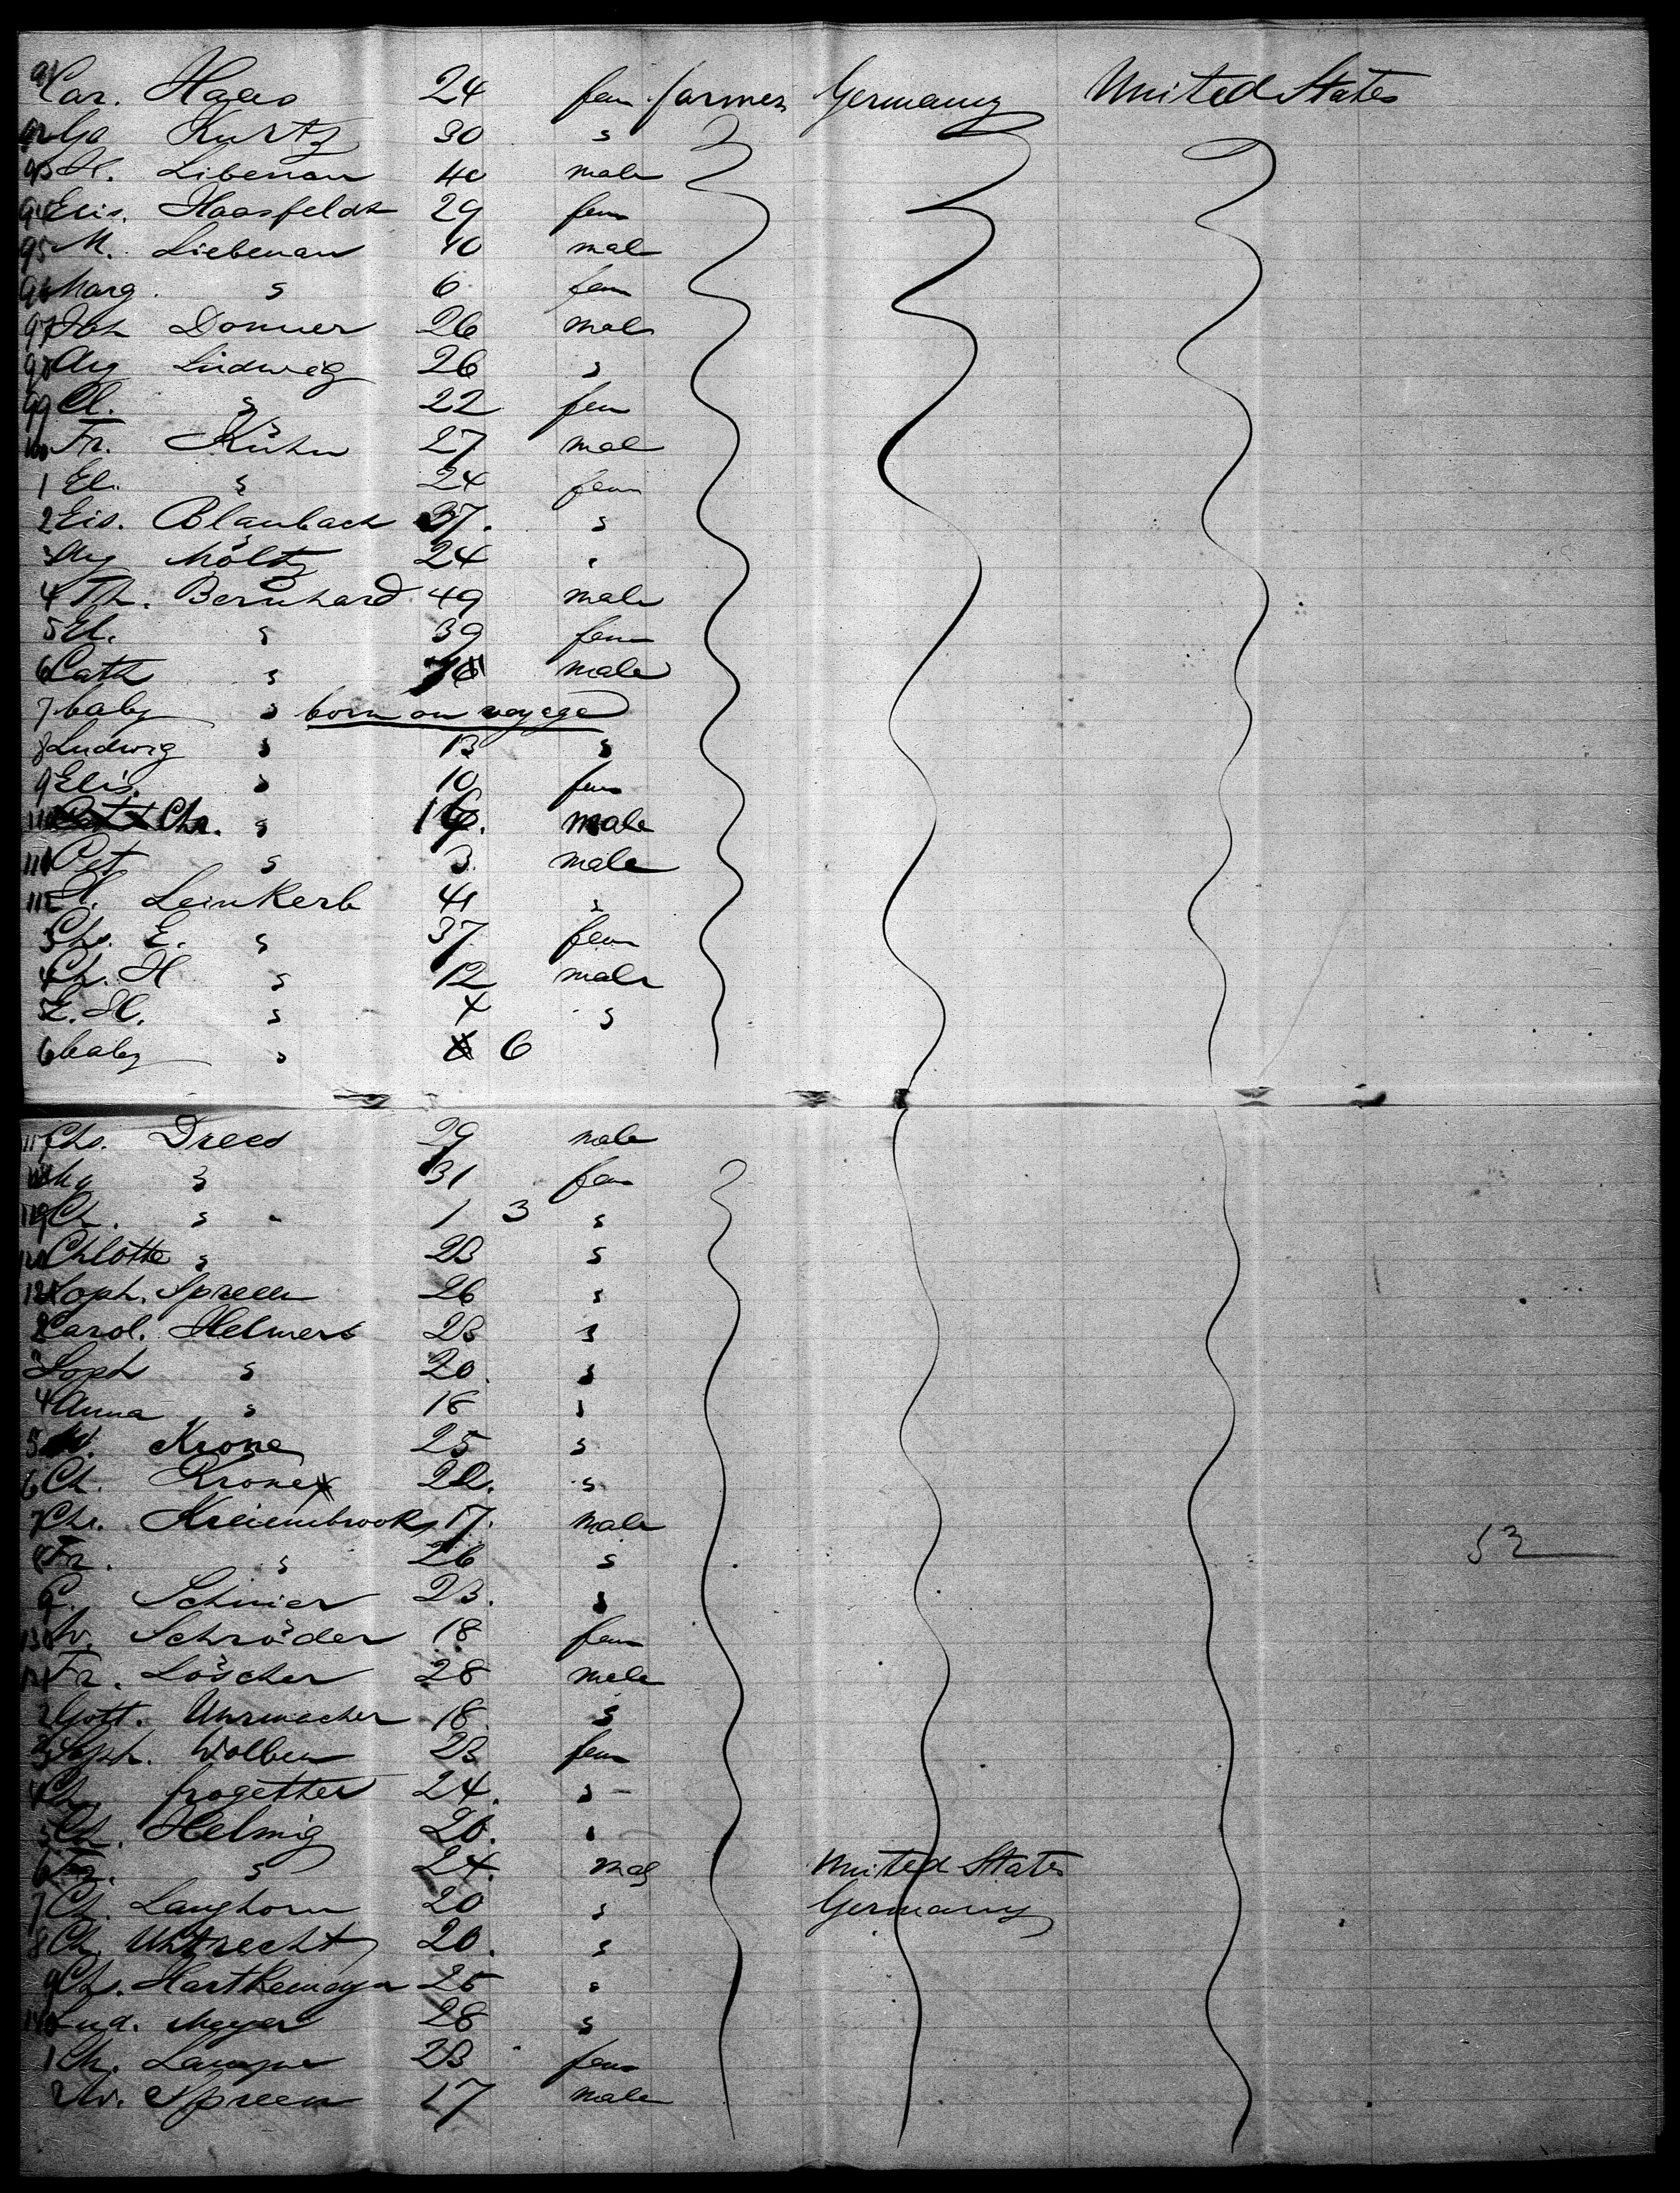 91 Car. Haas 24 fem farmer Germany United States
92 Go Kurtz 30 s
93 H. Libenau 40 male
94 Elis. Haasfeldt 29 fem
95 M. Liebenau 10 mal
96 Marg. s 6 fem
97 Joh Donner 26 male
98 Aug Ludwig 26 s
99 Cl. s 22 fem
100 Fr. Kühn 27 mal
1 El. s 24 fem
2 Elis. Blaubach 37. s
3 Aug Möltz 24 s
4 Th. Bernhard 49 male
5 El. s 39 fem
6 Cath s male
7 baby s born on voyage
8 Ludwig s 13 s
9 Elis. s 10 fem
110 Chr. s 16. male
111 Pet s 3. male
112 H. Leinkerb 41 s
3 Chs. E. s 37 fem
4 Ch. H s 12 male
5 E. H. s 4 s
6 baby s 6
117 Chs. Drees 29 male
118 s 31 fem
119 Ch. s 1 3 s
120 Chlotte s 23 s
121 Soph. Spreen 26 s
2 Carol. Helmers 23 s
3 Soph s 20. s
4 Anna s 18 s
5 W. Krone 25 s
6 Ch. Krone 22. s
7 Chr. Kreienbrook 17. male
8 Fr. s 26 s
9 Schnier 23. s
130 W. Schröder 18 fem
131 Fr. Löscher 28 male
2 Gott. Uhrmacher 18 s
3 Soph. Wolben 23 fem
4 Ch. frogetter 24. s
5 Ch. Helmig 20. s
6 Fr. s 24. mal United States
7 Ch. Langhorn 20 s Germany
8 Ch. Uhtrecht 20. s
9 Chs. Hartkemeyer 25 s
140 Lud. Meyer 28 s
1 Ch. Lampe 23 fem
2 W. Spreen 17 male